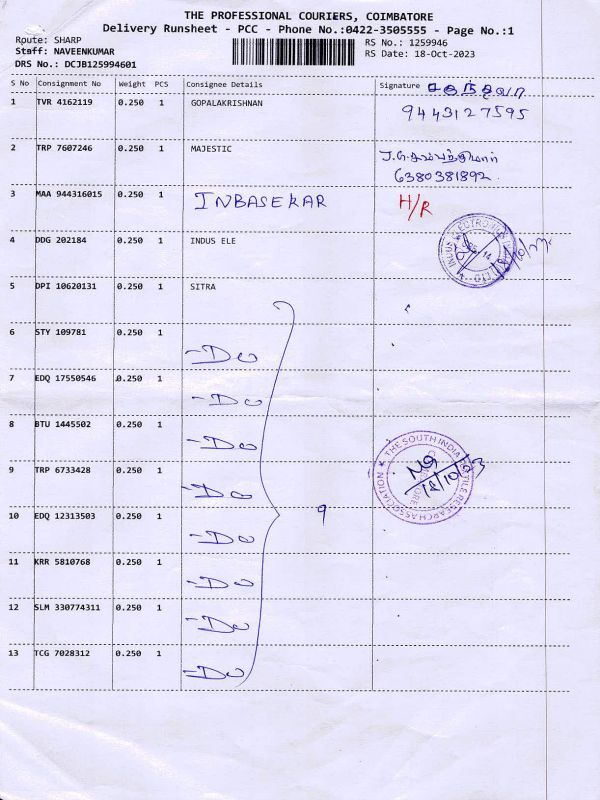 THE PROFESSIONAL COURIERS, COIMBATORE
Delivery Runsheet - PCC - Phone No.:0422-3505555 - Page No.:1
Route: SHARP
Staff: NAVEENKUMAR
DRS No.: DCJB125994601
RS No.: 1259946
RS Date: 18-Oct-2023
S No Consignment No Weight PCS Consignee Details Signature
1 TVR 4162119 0.250 1 GOPALAKRISHNAN
9443127595
2 TRP 7607246 0.250 1 MAJESTIC
6380381892
3 MAA 944316015 0.250 1 INBASEKAR H/R
4 DDG 202184 0.250 1 INDUS ELE
5 DPI 10620131 0.250 1 SITRA
6 STY 109781 0.250 1 -Do
7 EDQ 17550546 0.250 1 -Do
8 BTU 1445502 0.250 1 -Do
9 TRP 6733428 0.250 1 -Do
THE SOUTH INDIA TEXTILE RESEARCH ASSOCIATION
18/10/23
9
10 EDQ 12313503 0.250 1 -Do
11 KRR 5810768 0.250 1 -Do
12 SLM 330774311 0.250 1 -Do
13 TCG 7028312 0.250 1 -Do